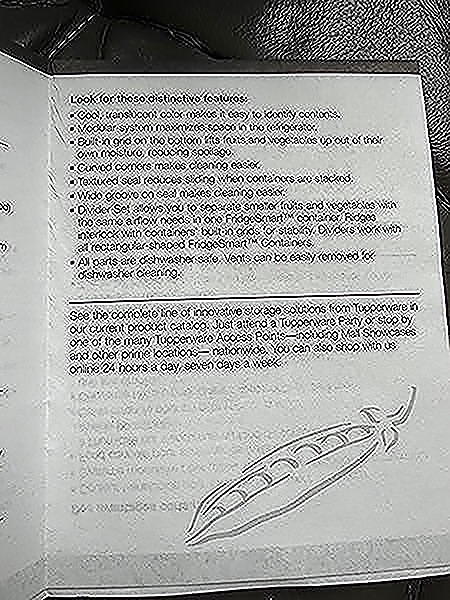 Look for these distinctive features:
• Cool, translucent color makes it easy to identify contents.
• Modular system maximizes space in the refrigerator.
• Built-in grid on the bottom lifts fruits and vegetables up out of their
own moisture, reducing spoilage.
• Curved corners makes cleaning easier.
• Textured seal reduces sliding when containers are stacked.
• Wide groove on seal makes cleaning easier.
• Divider Set allows you to separate smaller fruits and vegetables with
the same airflow needs in one FridgeSmart™ container. Ridges
interlock with containers' built-in grids for stability. Dividers work with
all rectangular-shaped FridgeSmart™ Containers.
• All parts are dishwasher safe. Vents can be easily removed for
dishwasher cleaning.
See the complete line of innovative storage solutions from Tupperware in
our current product catalog. Just attend a Tupperware Party or stop by
one of the many Tupperware Access Points—including Mall Showcases
and other prime locations— nationwide. You can also shop with us
online 24 hours a day, seven days a week.